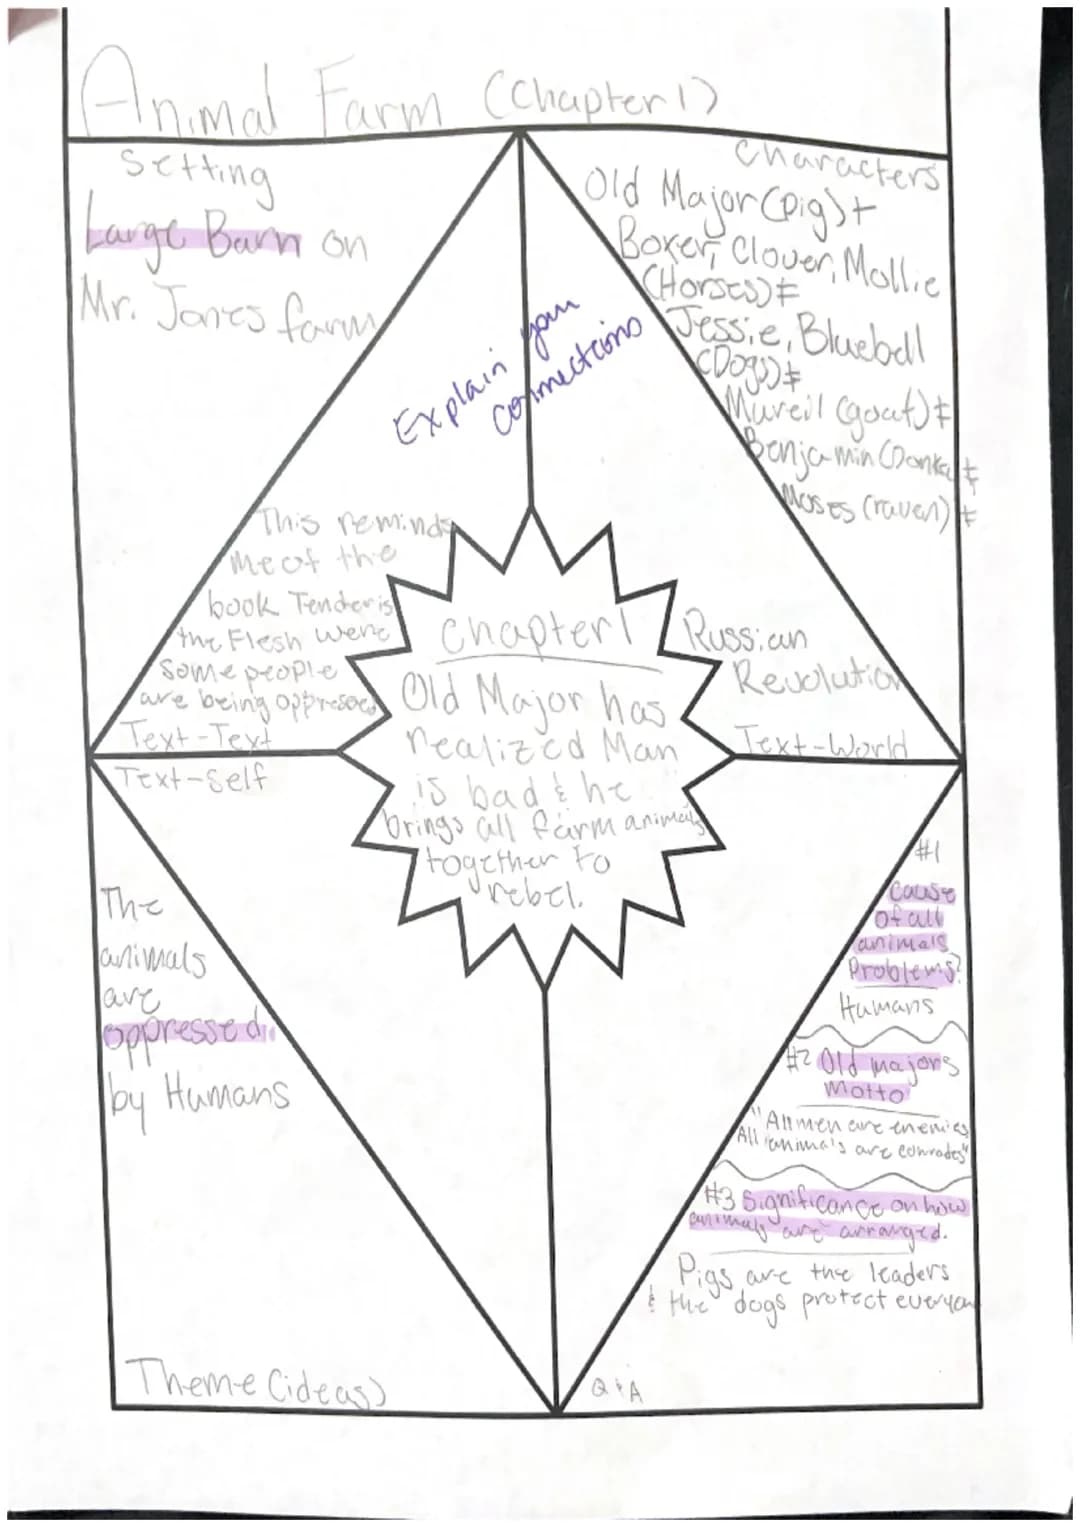 Animal Farm (Chapter 1)
Setting
Large Barn on
Mr. Jones farm
Characters
Old Major (pig) +
Boxer, Clover, Mollie
(Horses) ‡
Jessie, Bluebell
(Dogs) ‡
Mureil (goat) ‡
Benjamin (Donkey ‡
Moses (raven) ‡
Explain your
connections
This reminds
me of the
book Tender is
the Flesh were
some people
are being oppressed
Text-Text
Russian
Revolution
Text-World
Chapter 1
Old Major has
realized Man
is bad & he
brings all farm animals
together to
rebel.
Text-Self
The
animals
are
oppressed
by Humans
Theme (ideas)
#1
Cause
of all
animals
Problems?
Humans
#2 Old majors
Motto
"All men are enemies
All animals are comrades"
#3 Significance on how
animals are arranged.
Pigs are the leaders
& the dogs protect everyone
Q & A